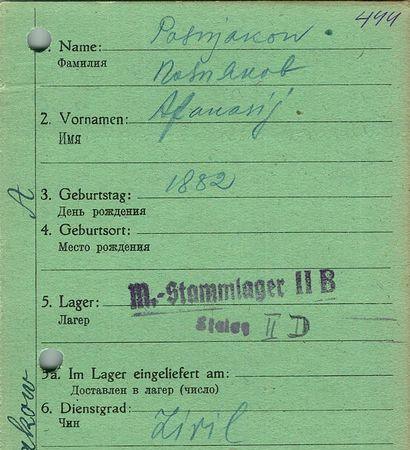 499
1. Name: Posnjakow.
Фамилия
Позняков
2. Vornamen: Afanasij.
Имя
3. Geburtstag: 1882
День рождения
4. Geburtsort:
Место рождения
5. Lager: M.-Stammlager II B
Лагер
Stalag II D
5a. Im Lager eingeliefert am:
Доставлен в лагер (число)
6. Dienstgrad: Zivil
Чин
A